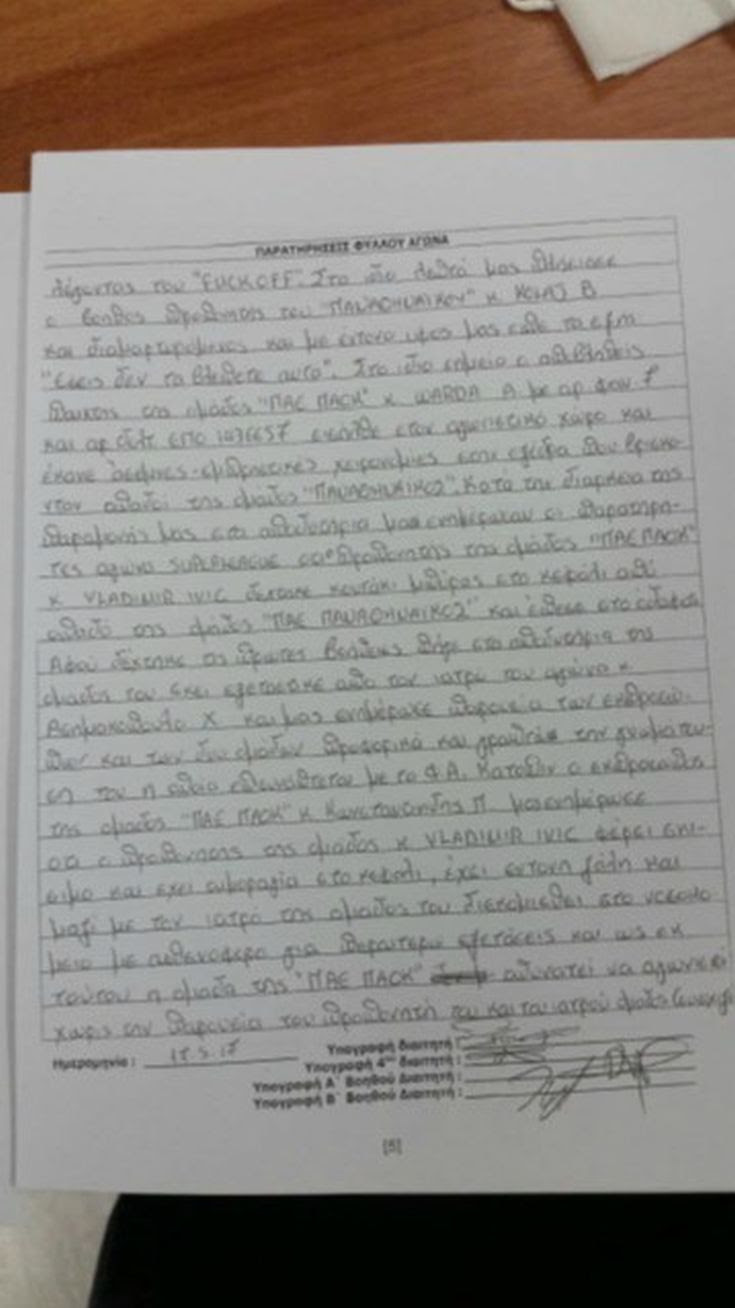 ΠΑΡΑΤΗΡΗΣΕΙΣ ΦΥΛΛΟΥ ΑΓΩΝΑ
λέγοντας του "FUCK OFF". Στο ίδιο λεπτό μας πλησίασε
ο βοηθός προπονητής του "ΠΑΝΑΘΗΝΑΙΚΟΥ" κ
και διαμαρτυρόμενος και με έντονο ύφος μας είπε το εξής
"Εσείς δεν τα βλέπετε αυτά". Στο ίδιο σημείο ο
παίκτης της ομάδος "ΠΑΕ ΠΑΟΚ" κ WARDA A με αρ φαν 7
και αρ δελτ ΕΠΟ 1436657 εισήλθε στον αγωνιστικό χώρο και
έκανε άσεμνες χειρονομίες στην εξέδρα που βρισκό
νταν οπαδοί της ομάδος "ΠΑΝΑΘΗΝΑΙΚΟΣ". Κατά την διάρκεια της
παραμονής μας στα αποδυτήρια μας ενημέρωσαν οι παρατηρη-
τές αγώνα SUPERLEAGUE ότι ο προπονητής της ομάδος "ΠΑΕ ΠΑΟΚ"
κ VLADIMIR IVIC δέχτηκε κουτάκι μπύρας στο κεφάλι από
οπαδό της ομάδος "ΠΑΕ ΠΑΝΑΘΗΝΑΙΚΟΣ" και έπεσε στο έδαφος
Αφού δέχτηκε τις πρώτες βοήθειες πήγε στα αποδυτήρια της
ομάδος του εκεί εξετάστηκε από τον ιατρό του αγώνα κ
Χ και μας ενημέρωσε παρουσία των εκπροσώ-
πων και των δυο ομάδων προφορικά και γραπτώς την γνωμάτευ-
ση του η οποία επισυνάπτεται με το Φ.Α. Κατόπιν ο εκπρόσωπος
της ομάδος "ΠΑΕ ΠΑΟΚ" κ Κωνσταντινίδης Π. μας ενημέρωσε
ότι ο προπονητής της ομάδος κ VLADIMIR IVIC φέρει σχί-
σιμο και έχει αιμορραγία στο κεφάλι, έχει έντονη ζάλη και
μαζί με τον ιατρό της ομάδος του διεκομίσθει στο νοσοκο
μείο με ασθενοφόρο για περαιτέρω εξετάσεις και ως εκ
τούτου η ομάδα της "ΠΑΕ ΠΑΟΚ" αδυνατεί να αγωνιστεί
χωρίς την παρουσία του προπονητή του και του ιατρού ομάδος
Ημερομηνία : 17.5.17
Υπογραφή διαιτητή :
Υπογραφή 4ου διαιτητή :
Υπογραφή Α' Βοηθού Διαιτητή :
Υπογραφή Β' Βοηθού Διαιτητή :
[5]